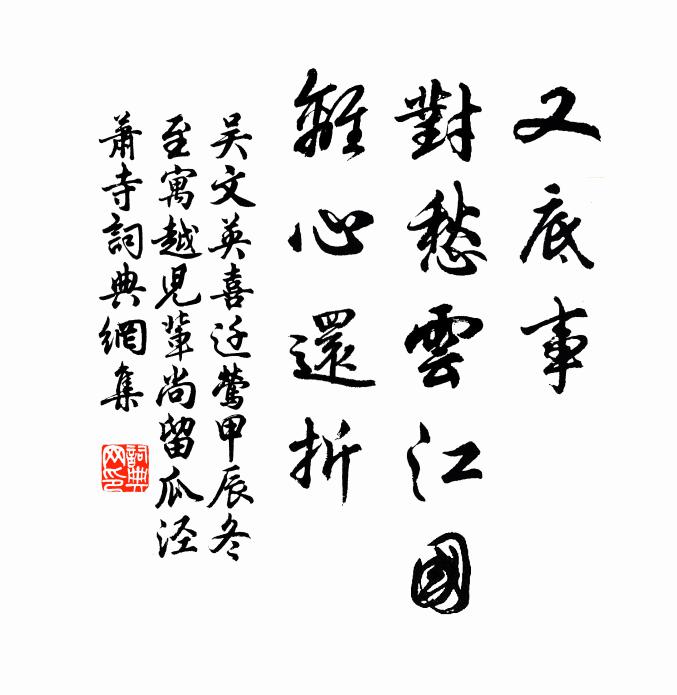 又底事
對愁雲江國
離心還折
吳文英喜迁鶯甲辰冬
至寓越兒輩尚留瓜涇
蕭寺詞典網集
詞典网印